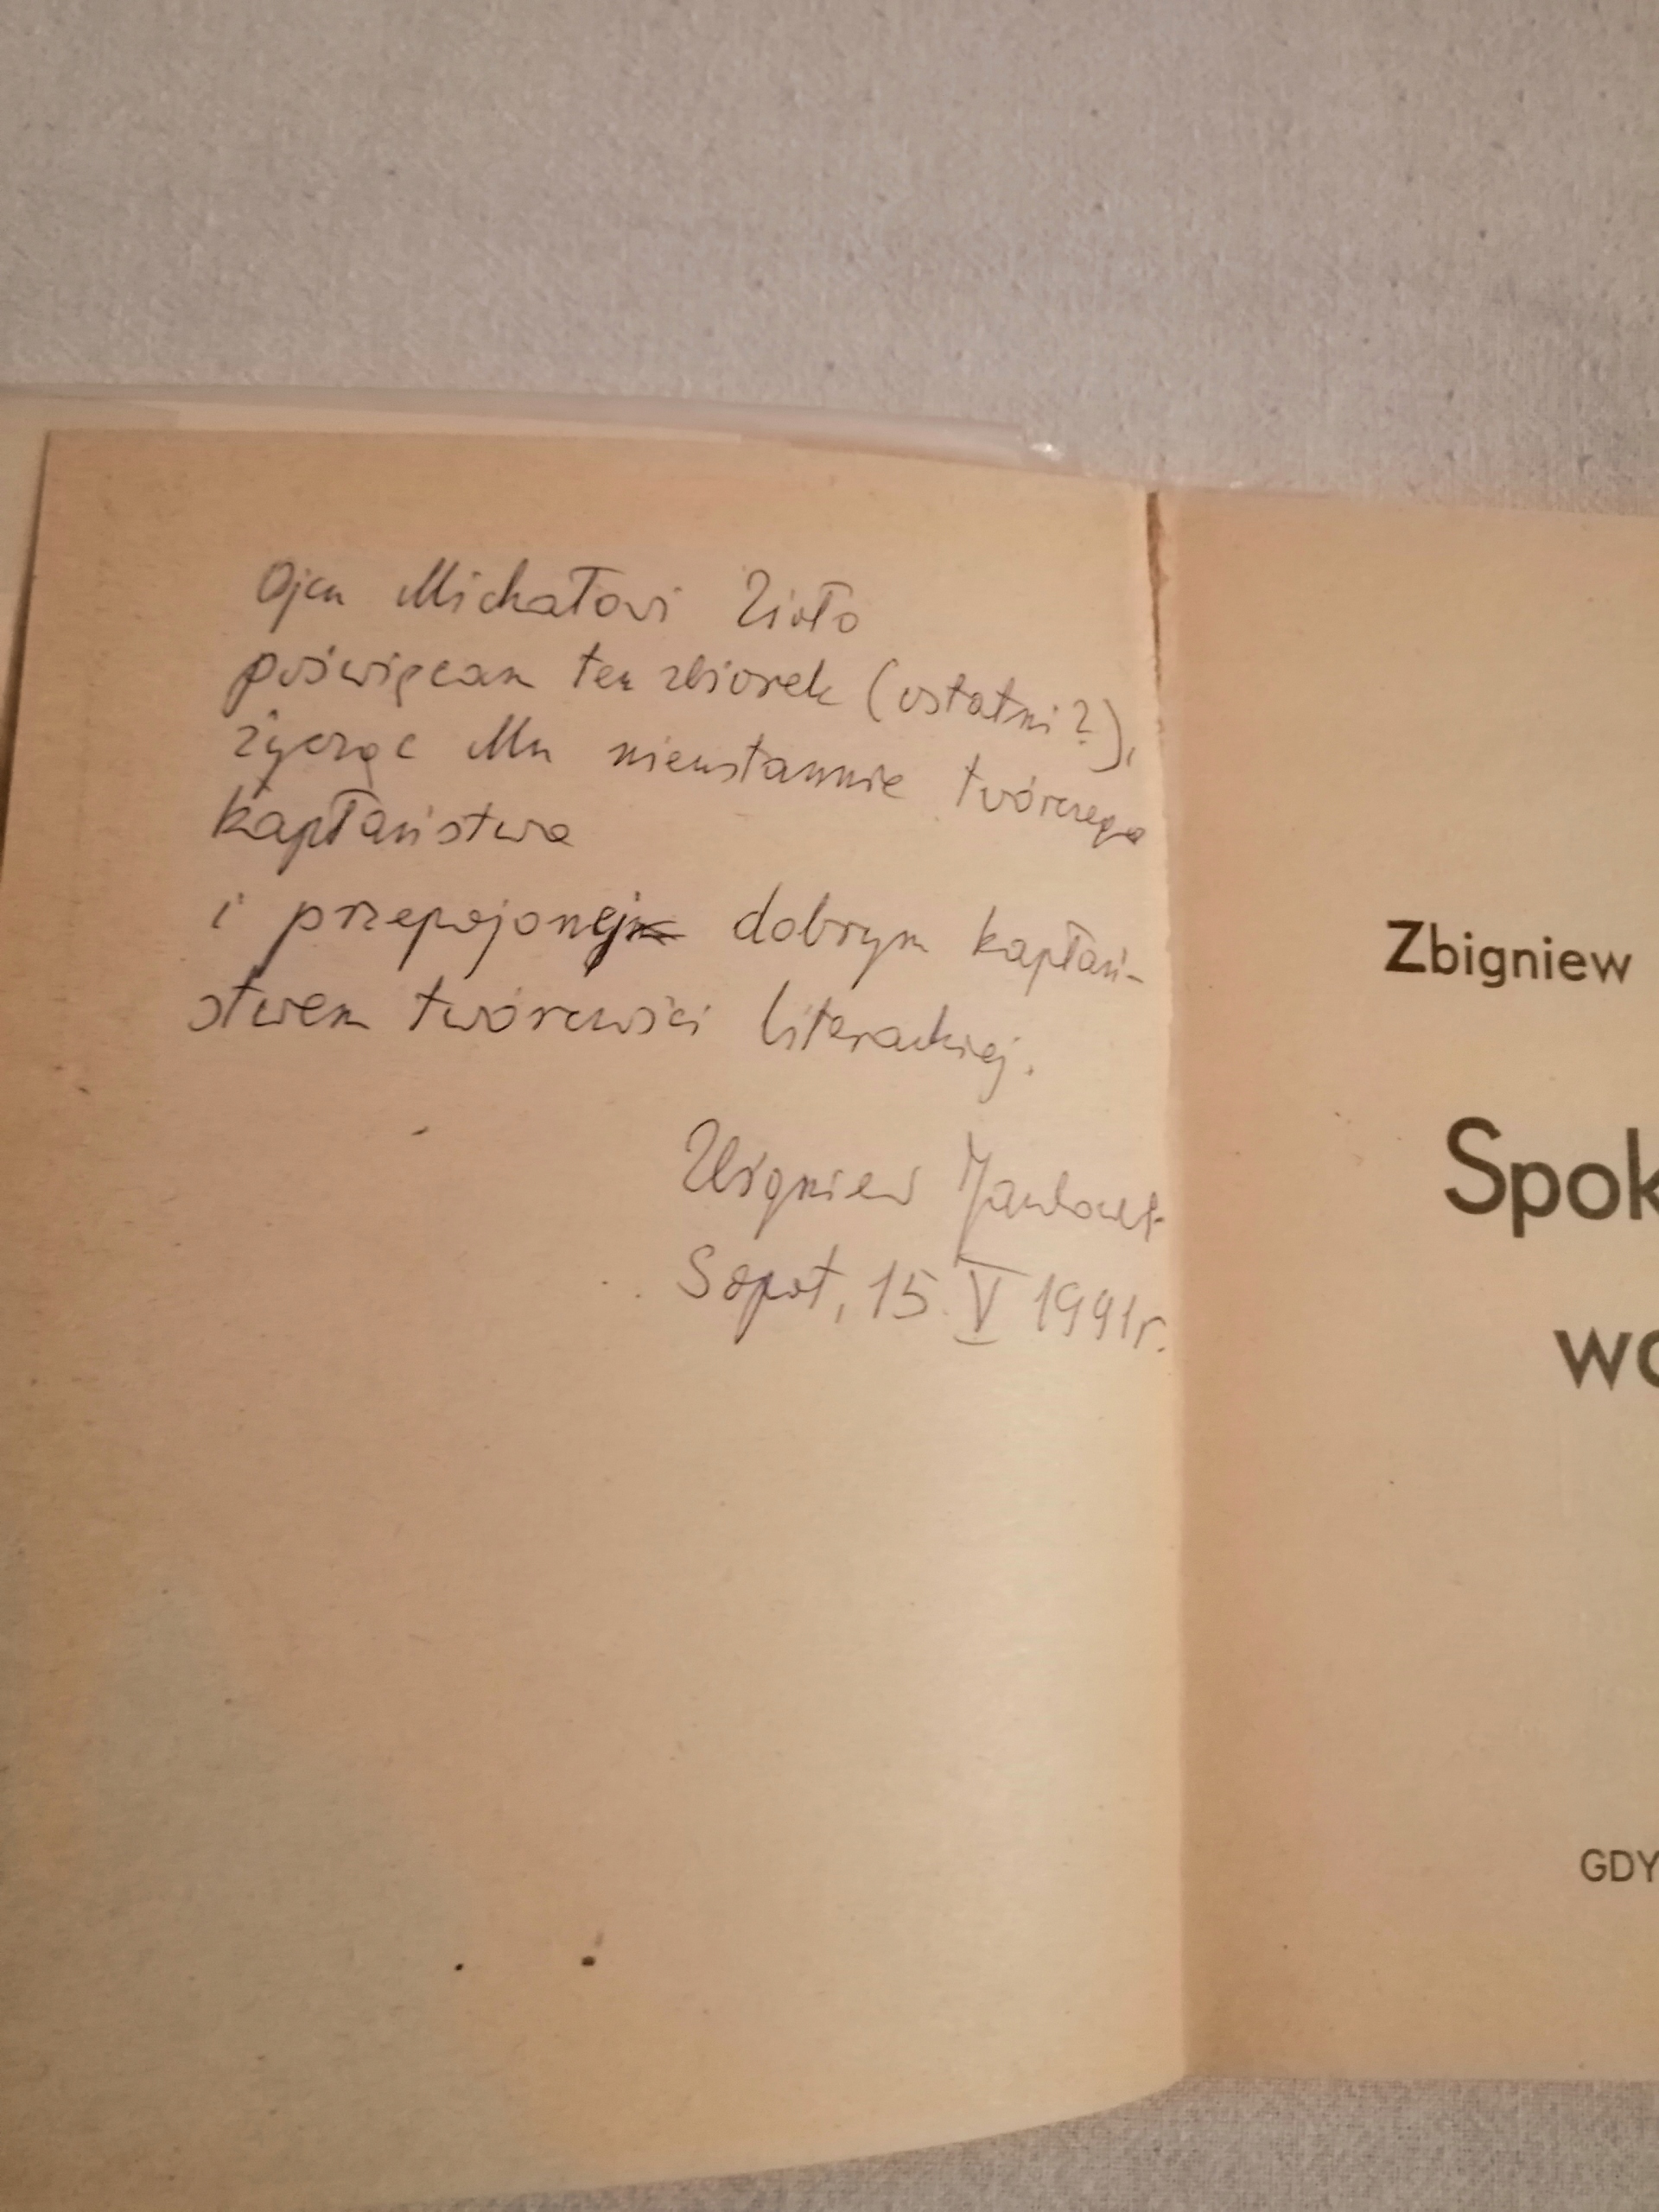 Ojcu Michałowi Zioło
poświęcam ten zbiorek (ostatni?),
życząc Mu nieustannie twórczego
kapłaństwa
i przepojonej dobrym kapłań-
stwem twórczości literackiej.
Zbigniew Jankowski
Sopot, 15. V 1991r.
Zbigniew
Spok
wo
GDY